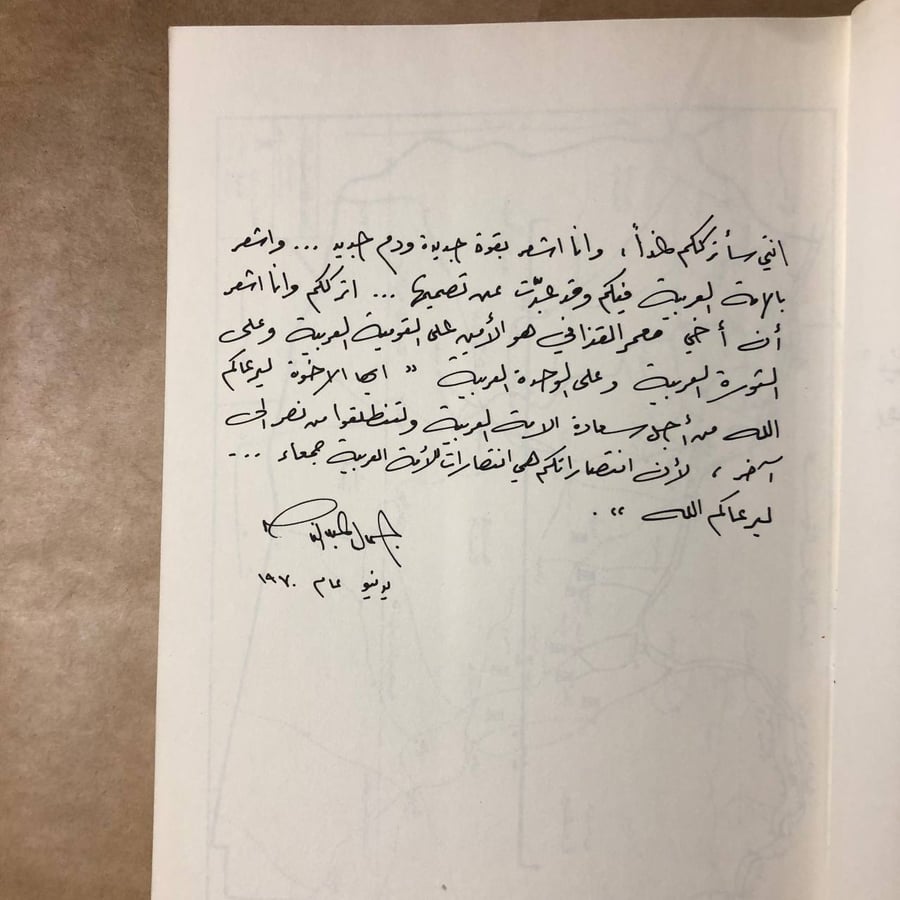 انني سأترككم غداً، وانا اشعر بقوة جديدة ودم جديد ... واشعر
بالامة العربية فيكم وقد عبّرت عن تصميمها ... اترككم وانا اشعر
أن أخي معمر القذافي هو الأمين على القومية العربية وعلى
الثورة العربية وعلى الوحدة العربية " ايها الاخوة ليرعاكم
الله من أجل سعادة الامة العربية ولتنطلقوا من نصر الى
آخر، لأن انتصاراتكم هي انتصارات للأمة العربية جمعاء ...
ليرعاكم الله " .
جمال عبد الناصر
يونيو عام ١٩٧٠